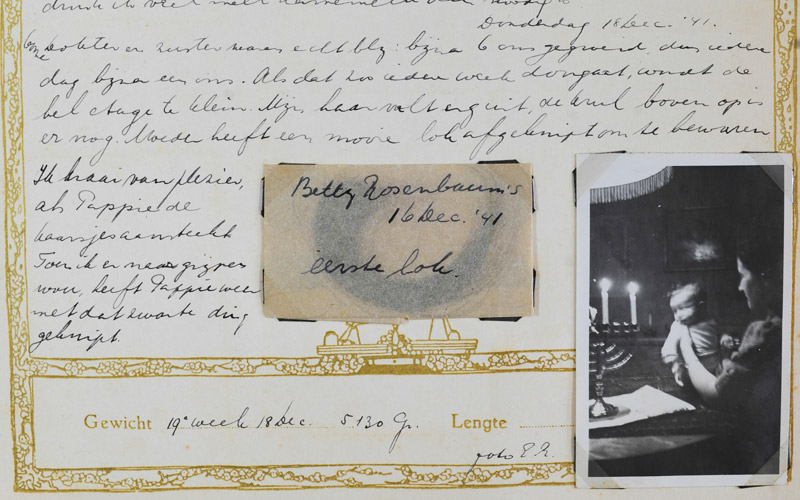 Donderdag 18 Dec. '41.
dokter en zuster waren echt blij: bijna 6 ons gegroeid, dus ieder
dag bijna een ons. Als dat zoo ieder week doorgaat, wordt de
bel etage te klein. Mijn haar valt erg uit, de krul boven op is
er nog. Moeder heeft een mooie lok afgeknipt om te bewaren
Ik kraai van plezier,
als Pappie de
kaarsjes aansteekt
Toen ik er naar grijpen
wou, heeft Pappie weer
met dat zwarte ding
geknipt.
Betty Rosenbaum's
16 Dec. '41
eerste lok.
Gewicht 19e week 18 Dec. 5130 Gr. Lengte
foto E.R.